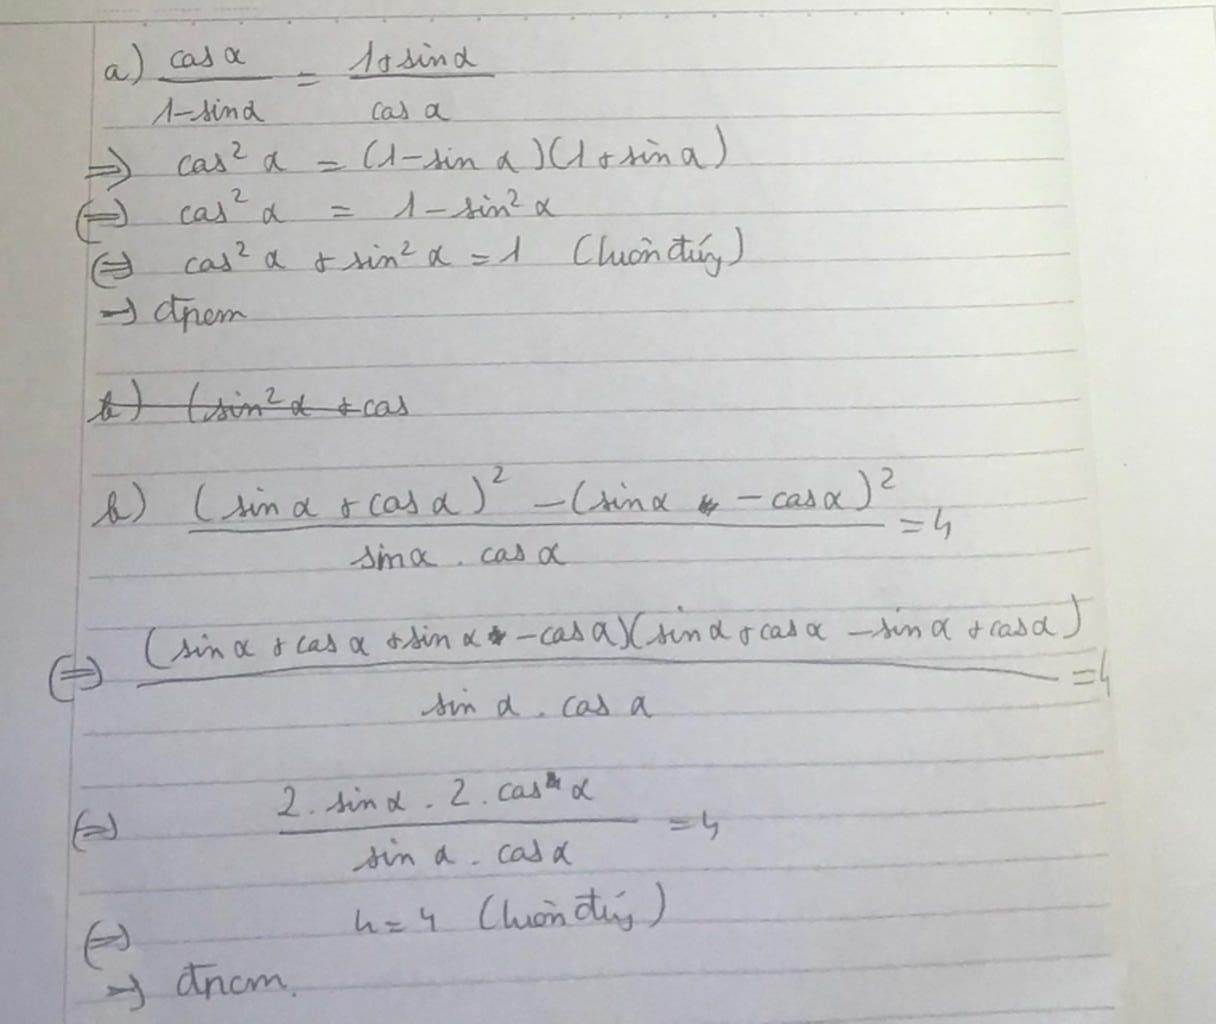 a) cos α / 1 - sin α = 1 + sin α / cos α
=> cos² α = (1 - sin α)(1 + sin α)
<=> cos² α = 1 - sin² α
<=> cos² α + sin² α = 1 (luôn đúng)
→ đpcm
b) (sin² α + cos
b) (sin α + cos α)² - (sin α - cos α)² / sin α . cos α = 4
<=> (sin α + cos α + sin α - cos α)(sin α + cos α - sin α + cos α) / sin α . cos α = 4
<=> 2 . sin α . 2 . cos α / sin α . cos α = 4
<=> 4 = 4 (luôn đúng)
→ đpcm.